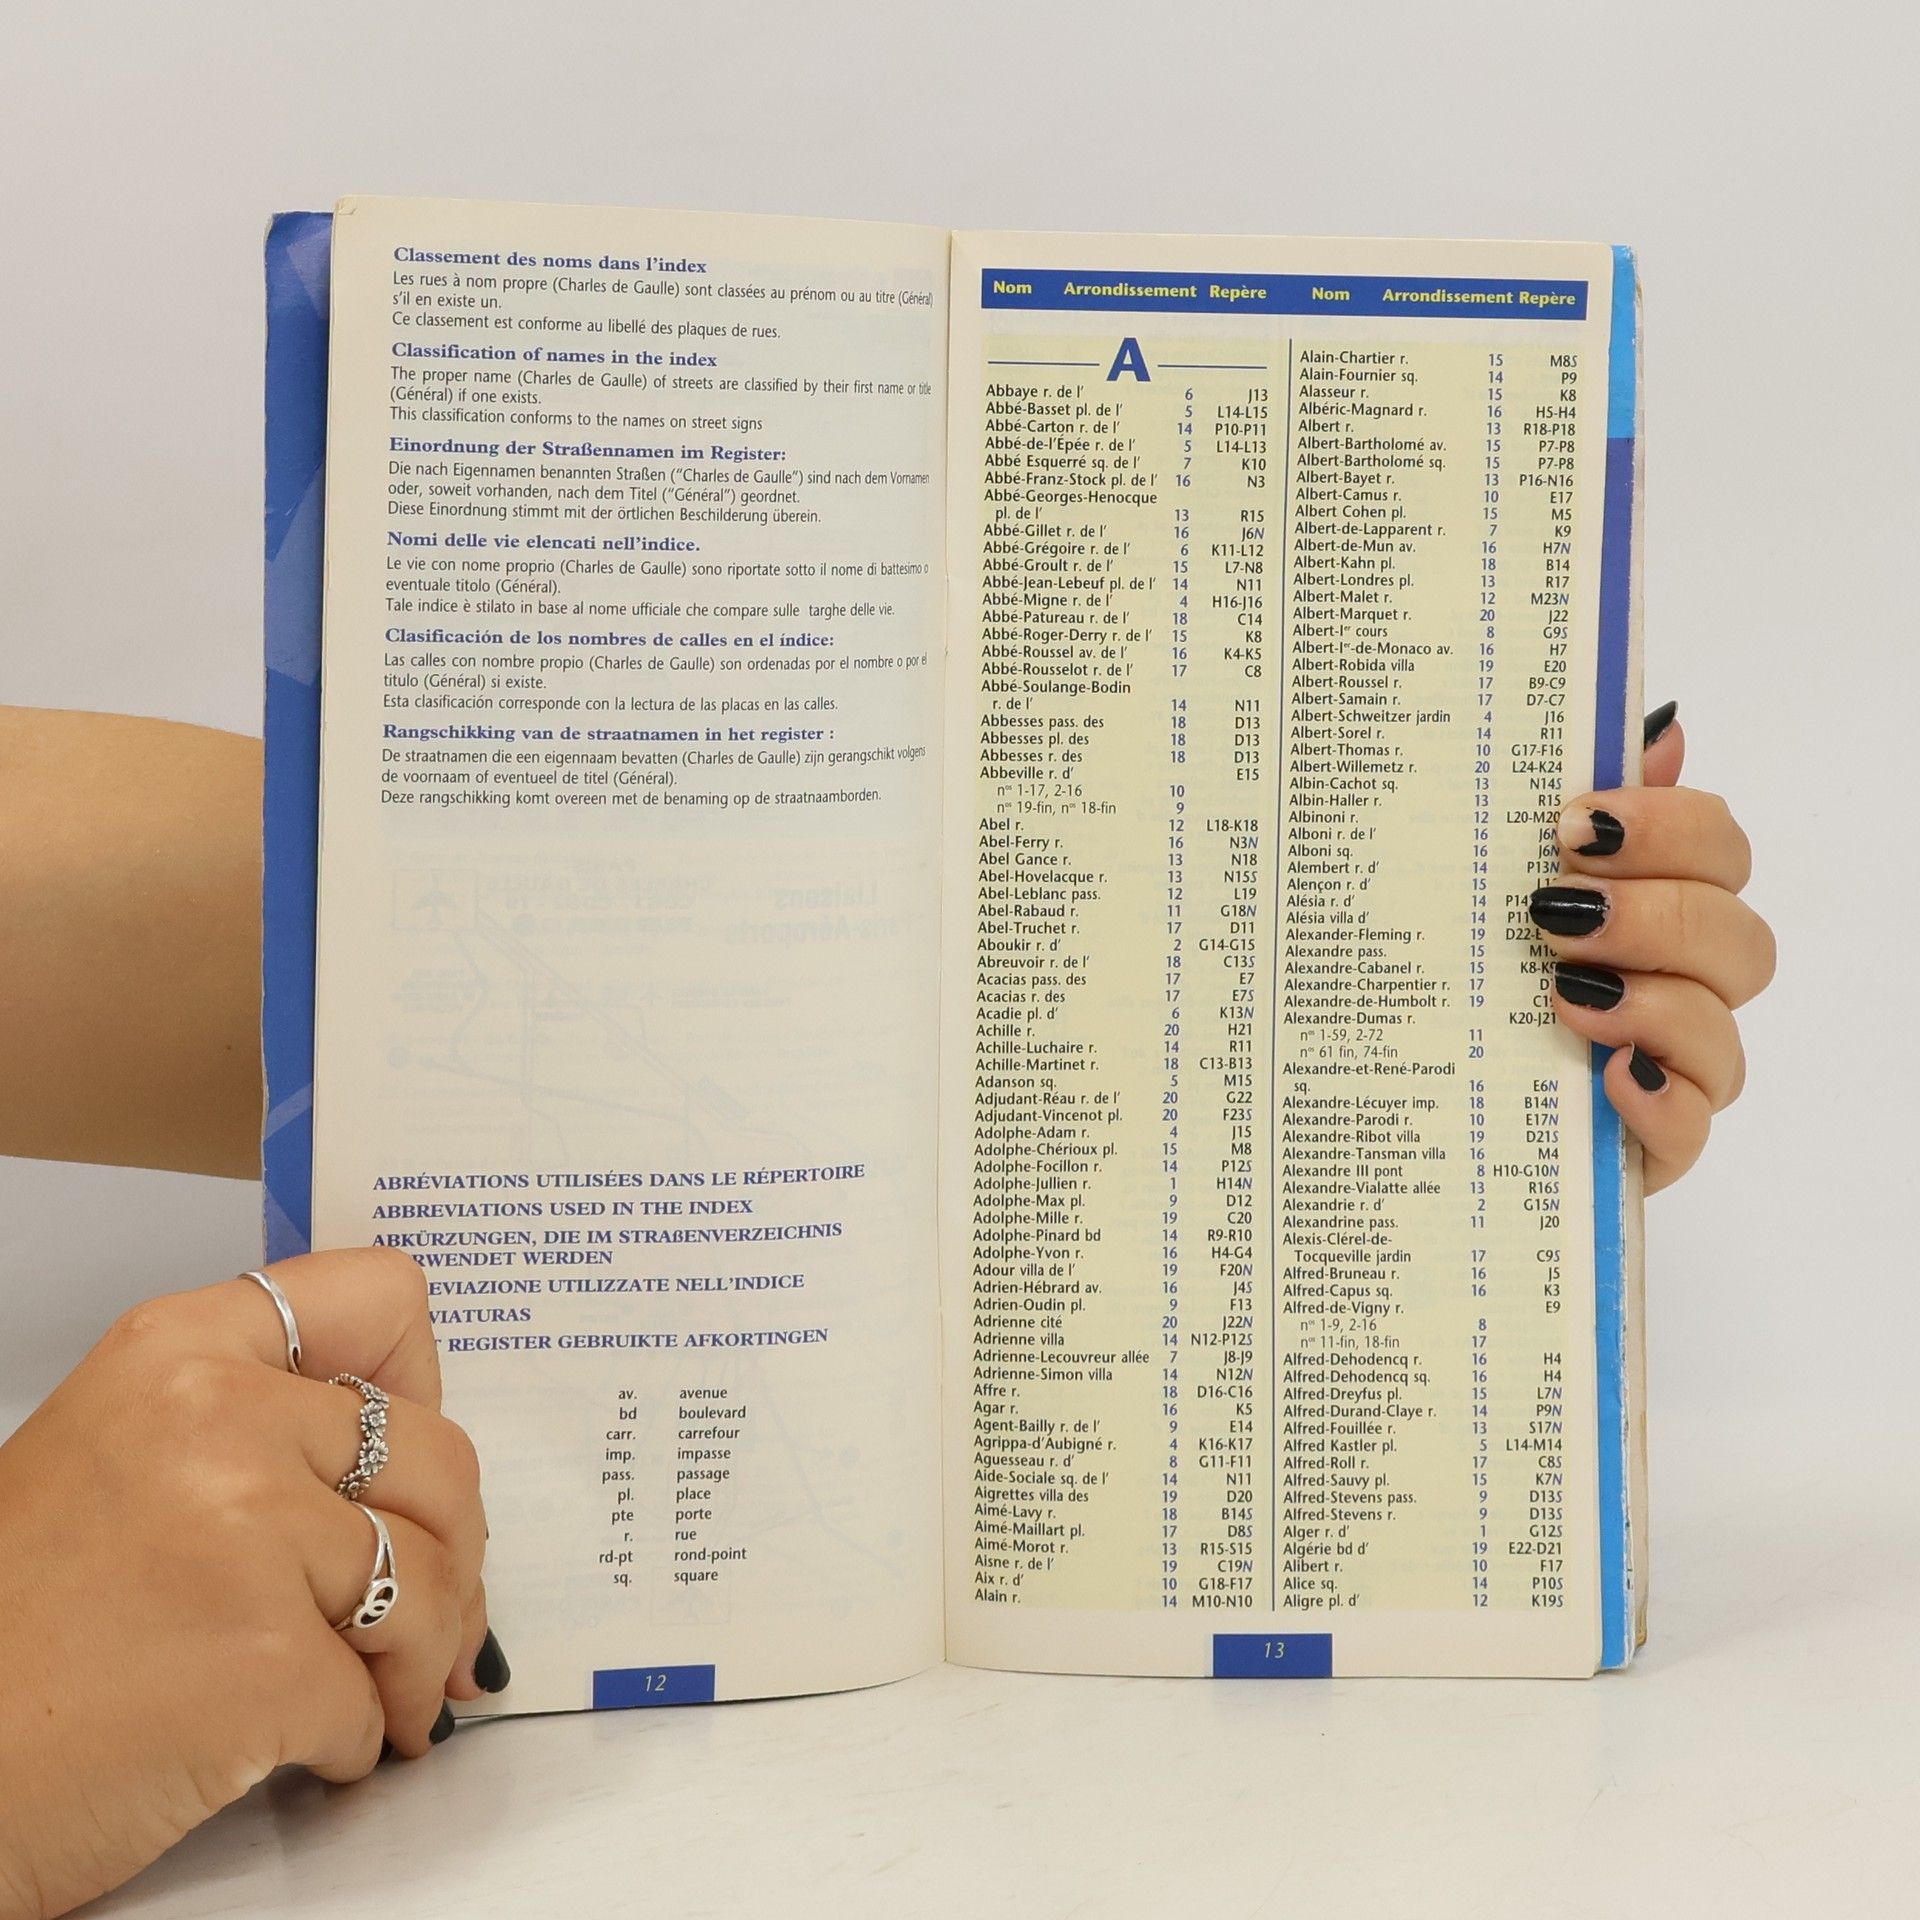 Classement des noms dans l'index
Les rues à nom propre (Charles de Gaulle) sont classées au prénom ou au titre (Général)
s'il en existe un.
Ce classement est conforme au libellé des plaques de rues.
Classification of names in the index
The proper name (Charles de Gaulle) of streets are classified by their first name or title
(Général) if one exists.
This classification conforms to the names on street signs
Einordnung der Straßennamen im Register:
Die nach Eigennamen benannten Straßen ("Charles de Gaulle") sind nach dem Vornamen
oder, soweit vorhanden, nach dem Titel ("Général") geordnet.
Diese Einordnung stimmt mit der örtlichen Beschilderung überein.
Nomi delle vie elencati nell'indice.
Le vie con nome proprio (Charles de Gaulle) sono riportate sotto il nome di battesimo o
eventuale titolo (Général).
Tale indice è stilato in base al nome ufficiale che compare sulle targhe delle vie.
Clasificación de los nombres de calles en el índice:
Las calles con nombre propio (Charles de Gaulle) son ordenadas por el nombre o por el
titulo (Général) si existe.
Esta clasificación corresponde con la lectura de las placas en las calles.
Rangschikking van de straatnamen in het register :
De straatnamen die een eigennaam bevatten (Charles de Gaulle) zijn gerangschikt volgens
de voornaam of eventueel de titel (Général).
Deze rangschikking komt overeen met de benaming op de straatnaamborden.
ABRÉVIATIONS UTILISÉES DANS LE RÉPERTOIRE
ABBREVIATIONS USED IN THE INDEX
ABKÜRZUNGEN, DIE IM STRAßENVERZEICHNIS
RWENDET WERDEN
EVIAZIONE UTILIZZATE NELL'INDICE
VIATURAS
T REGISTER GEBRUIKTE AFKORTINGEN
av. avenue
bd boulevard
carr. carrefour
imp. impasse
pass. passage
pl. place
pte porte
r. rue
rd-pt rond-point
sq. square
12
Nom Arrondissement Repère
A
Abbaye r. de l' 6 J13
Abbé-Basset pl. de l' 5 L14-L15
Abbé-Carton r. de l' 14 P10-P11
Abbé-de-l'Épée r. de l' 5 L14-L13
Abbé Esquerré sq. de l' 7 K10
Abbé-Franz-Stock pl. de l' 16 N3
Abbé-Georges-Henocque
pl. de l' 13 R15
Abbé-Gillet r. de l' 16 J6N
Abbé-Grégoire r. de l' 6 K11-L12
Abbé-Groult r. de l' 15 L7-N8
Abbé-Jean-Lebeuf pl. de l' 14 N11
Abbé-Migne r. de l' 4 H16-J16
Abbé-Patureau r. de l' 18 C14
Abbé-Roger-Derry r. de l' 15 K8
Abbé-Roussel av. de l' 16 K4-K5
Abbé-Rousselot r. de l' 17 C8
Abbé-Soulange-Bodin
r. de l' 14 N11
Abbesses pass. des 18 D13
Abbesses pl. des 18 D13
Abbesses r. des 18 D13
Abbeville r. d' E15
nos 1-17, 2-16 10
nos 19-fin, nos 18-fin 9
Abel r. 12 L18-K18
Abel-Ferry r. 16 N3N
Abel Gance r. 13 N18
Abel-Hovelacque r. 13 N15S
Abel-Leblanc pass. 12 L19
Abel-Rabaud r. 11 G18N
Abel-Truchet r. 17 D11
Aboukir r. d' 2 G14-G15
Abreuvoir r. de l' 18 C13S
Acacias pass. des 17 E7
Acacias r. des 17 E7S
Acadie pl. d' 6 K13N
Achille r. 20 H21
Achille-Luchaire r. 14 R11
Achille-Martinet r. 18 C13-B13
Adanson sq. 5 M15
Adjudant-Réau r. de l' 20 G22
Adjudant-Vincenot pl. 20 F23S
Adolphe-Adam r. 4 J15
Adolphe-Chérioux pl. 15 M8
Adolphe-Focillon r. 14 P12S
Adolphe-Jullien r. 1 H14N
Adolphe-Max pl. 9 D12
Adolphe-Mille r. 19 C20
Adolphe-Pinard bd 14 R9-R10
Adolphe-Yvon r. 16 H4-G4
Adour villa de l' 19 F20N
Adrien-Hébrard av. 16 J4S
Adrien-Oudin pl. 9 F13
Adrienne cité 20 J22N
Adrienne villa 14 N12-P12S
Adrienne-Lecouvreur allée 7 J8-J9
Adrienne-Simon villa 14 N12N
Affre r. 18 D16-C16
Agar r. 16 K5
Agent-Bailly r. de l' 9 E14
Agrippa-d'Aubigné r. 4 K16-K17
Aguesseau r. d' 8 G11-F11
Aide-Sociale sq. de l' 14 N11
Aigrettes villa des 19 D20
Aimé-Lavy r. 18 B14S
Aimé-Maillart pl. 17 D8S
Aimé-Morot r. 13 R15-S15
Aisne r. de l' 19 C19N
Aix r. d' 10 G18-F17
Alain r. 14 M10-N10
Nom Arrondissement Repère
Alain-Chartier r. 15 M8S
Alain-Fournier sq. 14 P9
Alasseur r. 15 K8
Albéric-Magnard r. 16 H5-H4
Albert r. 13 R18-P18
Albert-Bartholomé av. 15 P7-P8
Albert-Bartholomé sq. 15 P7-P8
Albert-Bayet r. 13 P16-N16
Albert-Camus r. 10 E17
Albert Cohen pl. 15 M5
Albert-de-Lapparent r. 7 K9
Albert-de-Mun av. 16 H7N
Albert-Kahn pl. 18 B14
Albert-Londres pl. 13 R17
Albert-Malet r. 12 M23N
Albert-Marquet r. 20 J22
Albert-Ier cours 8 G9S
Albert-Ier-de-Monaco av. 16 H7
Albert-Robida villa 19 E20
Albert-Roussel r. 17 B9-C9
Albert-Samain r. 17 D7-C7
Albert-Schweitzer jardin 4 J16
Albert-Sorel r. 14 R11
Albert-Thomas r. 10 G17-F16
Albert-Willemetz r. 20 L24-K24
Albin-Cachot sq. 13 N14S
Albin-Haller r. 13 R15
Albinoni r. 12 L20-M20
Alboni r. de l' 16 J6N
Alboni sq. 16 J6N
Alembert r. d' 14 P13N
Alençon r. d' 15
Alésia r. d' 14 P14
Alésia villa d' 14 P11
Alexander-Fleming r. 19 D22-E
Alexandre pass. 15
Alexandre-Cabanel r. 15 K8-K9
Alexandre-Charpentier r. 17 D
Alexandre-de-Humbolt r. 19 C19
Alexandre-Dumas r. K20-J21
nos 1-59, 2-72 11
nos 61 fin, 74-fin 20
Alexandre-et-René-Parodi
sq. 16 E6N
Alexandre-Lécuyer imp. 18 B14N
Alexandre-Parodi r. 10 E17N
Alexandre-Ribot villa 19 D21S
Alexandre-Tansman villa 16 M4
Alexandre III pont 8 H10-G10N
Alexandre-Vialatte allée 13 R16S
Alexandrie r. d' 2 G15N
Alexandrine pass. 11 J20
Alexis-Clérel-de-
Tocqueville jardin 17 C9S
Alfred-Bruneau r. 16 J5
Alfred-Capus sq. 16 K3
Alfred-de-Vigny r. E9
nos 1-9, 2-16 8
nos 11-fin, 18-fin 17
Alfred-Dehodencq r. 16 H4
Alfred-Dehodencq sq. 16 H4
Alfred-Dreyfus pl. 15 L7N
Alfred-Durand-Claye r. 14 P9N
Alfred-Fouillée r. 13 S17N
Alfred Kastler pl. 5 L14-M14
Alfred-Roll r. 17 C8S
Alfred-Sauvy pl. 15 K7N
Alfred-Stevens pass. 9 D13S
Alfred-Stevens r. 9 D13S
Alger r. d' 1 G12S
Algérie bd d' 19 E22-D21
Alibert r. 10 F17
Alice sq. 14 P10S
Aligre pl. d' 12 K19S
13